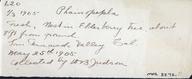 L20
5/5 1905 Phainopepla
Nest, Medium Elderberry tree about
8 ft from ground
San Fernando Valley Cal
May 25th 1905
Collected by W. B. Judson